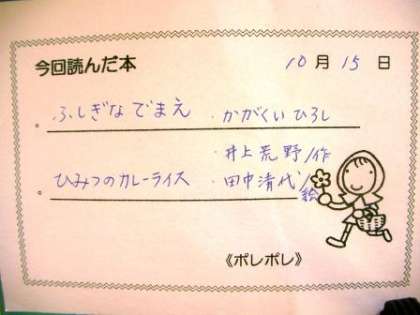 今回読んだ本 10月15日
ふしぎなでまえ ・かがくいひろし
・井上荒野/作
ひみつのカレーライス ・田中清代/絵
《ポレポレ》